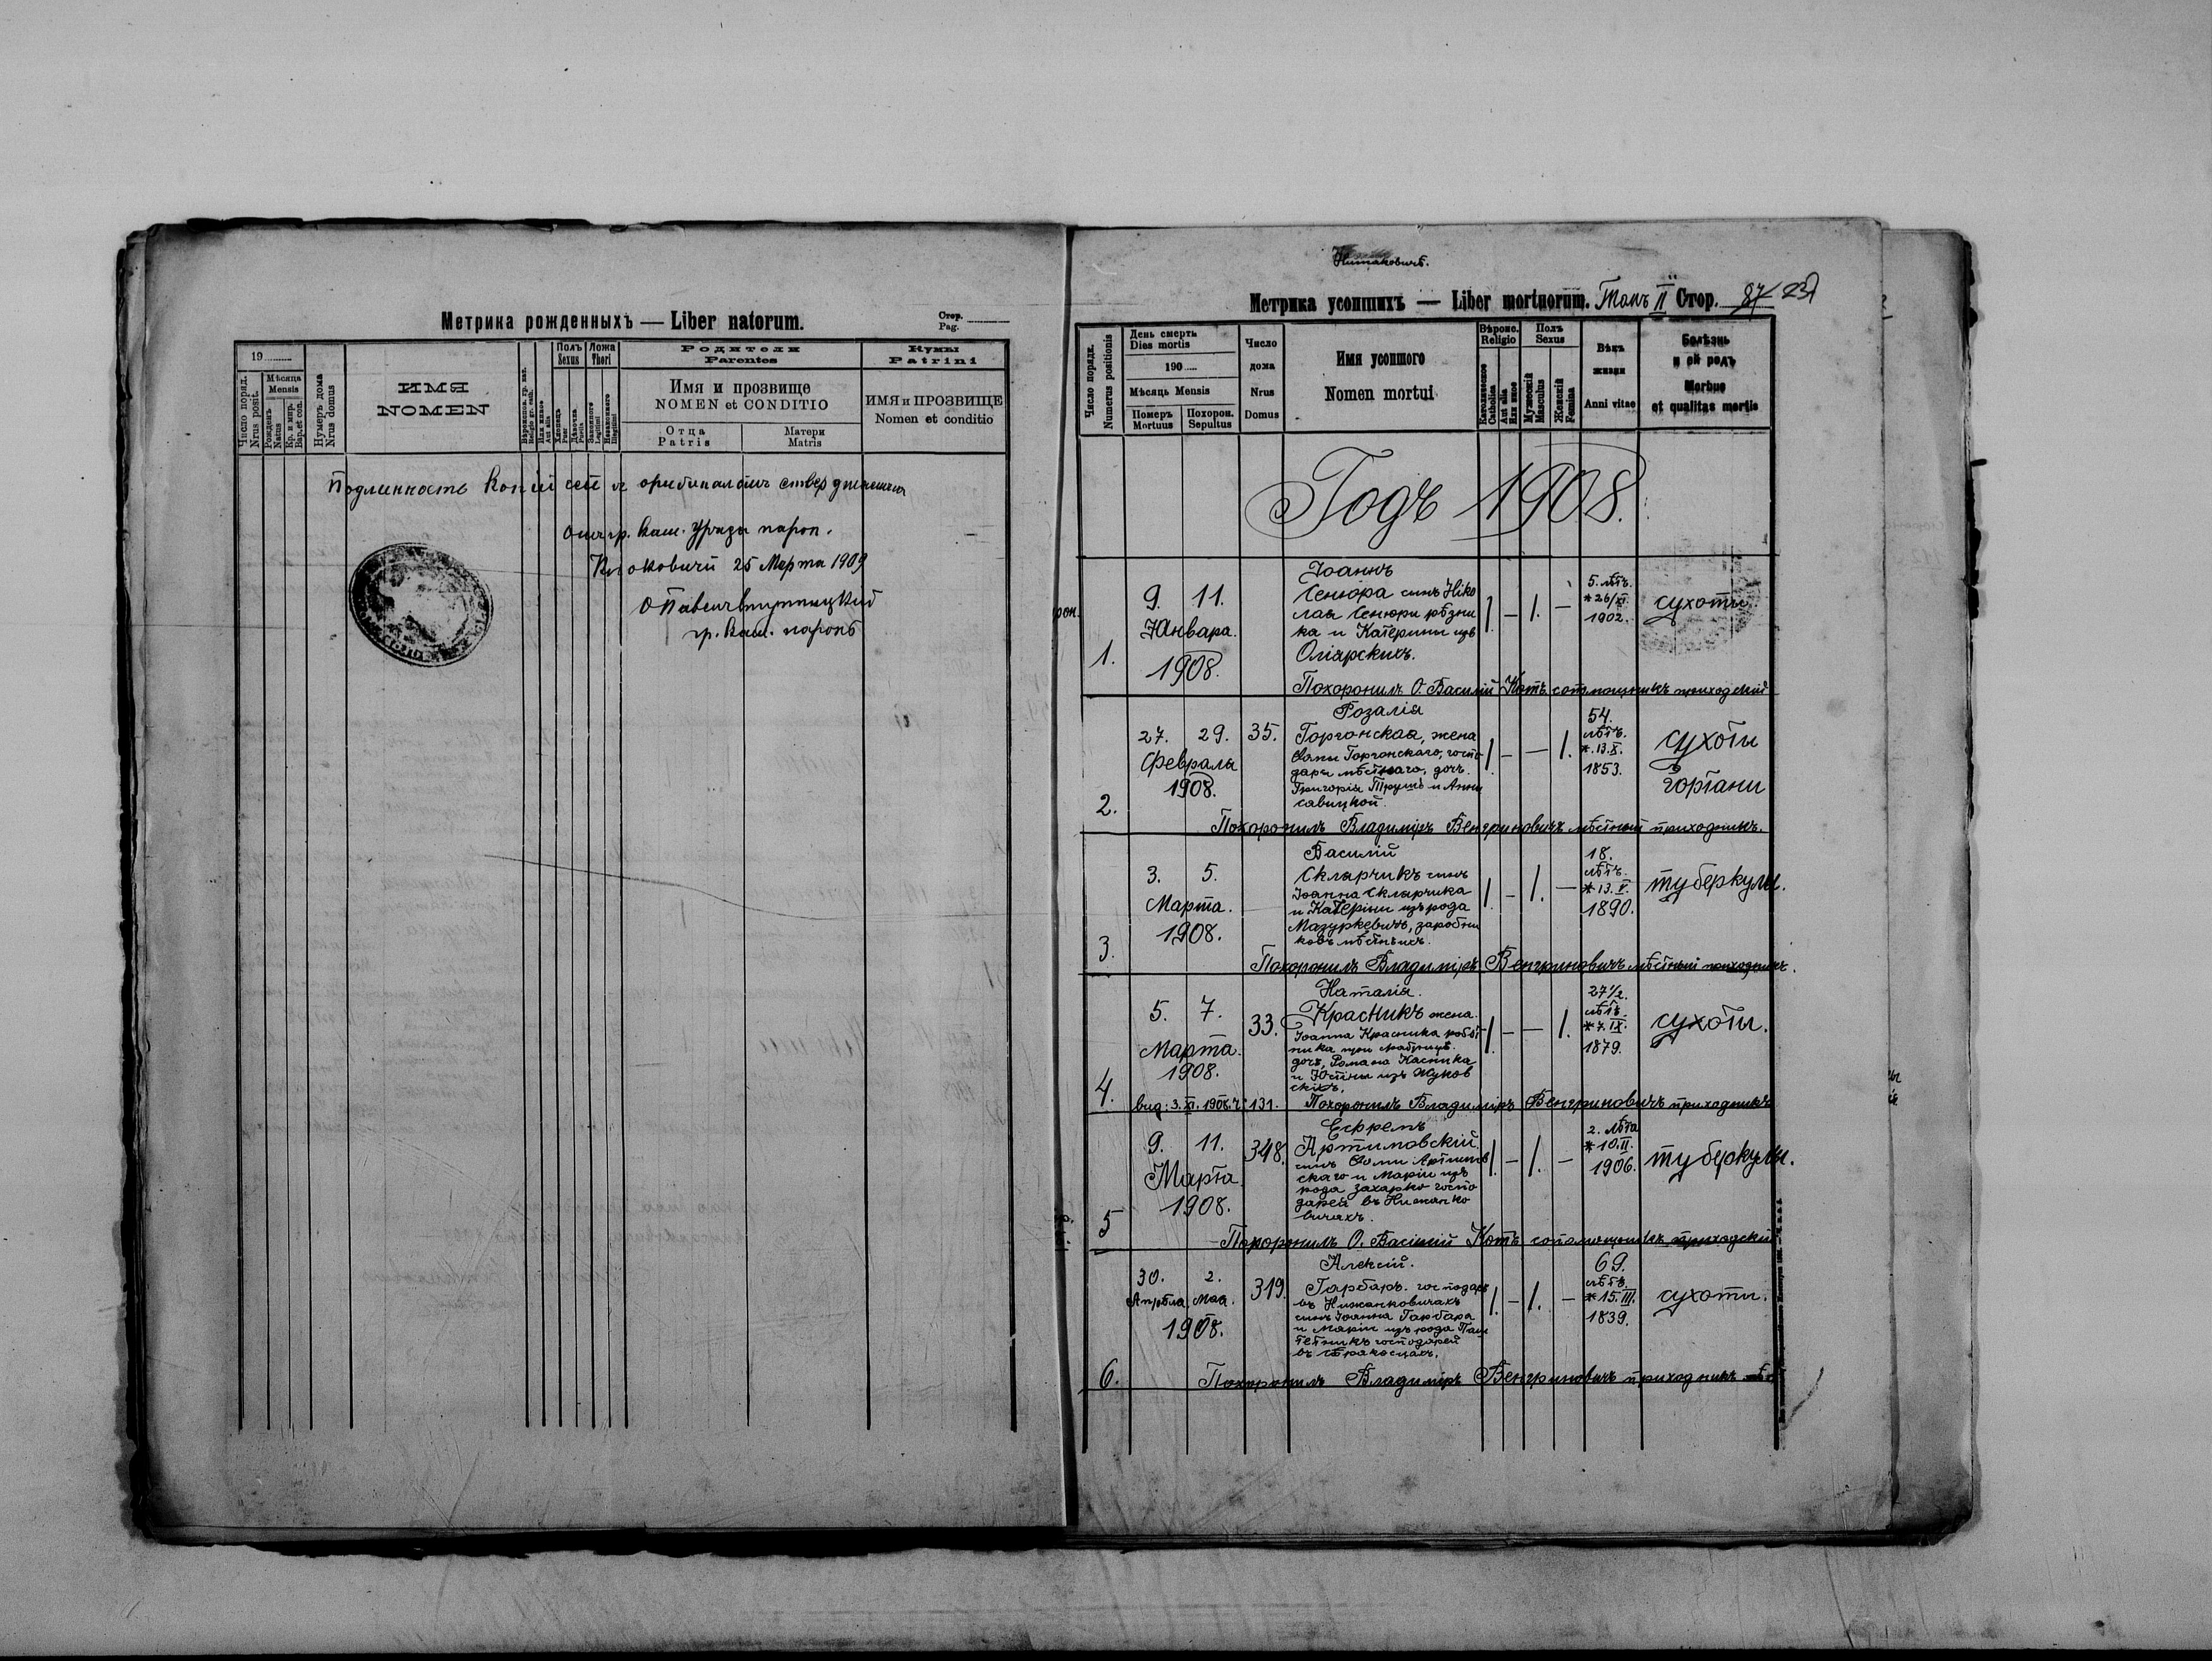 Метрика рожденныхъ — Liber natorum.
Стор.
Pag.
19
Число поряд.
Nrus posit.
Мѣсяца
Mensis
Рожденъ
Natus
Кр. и мир.
Bap. et con.
Нумеръ дома
Nrus domus
ИМЯ
NOMEN
Вѣроиспов. гр. кат.
Religio gr. cath.
Или инное
Aut alia
Полъ
Sexus
Хлопецъ
Puer
Дѣвочка
Puella
Ложа
Thori
Законного
Legitimi
Незаконного
Illegitimi
Родители
Parentes
Имя и прозвище
NOMEN et CONDITIO
Отца
Patris
Матери
Matris
Кумы
Patrini
ИМЯ и ПРОЗВИЩЕ
Nomen et conditio
Подлинность Копіи сей съ
25 Марта 1909
Метрика усопшихъ — Liber mortuorum. Томъ II Стор. 87
Число порядк.
Numerus positionis
День смерть
Dies mortis
190
Мѣсяць Mensis
Померъ
Mortuus
Похорон.
Sepultus
Число
дома
Nrus
Domus
Имя усопшого
Nomen mortui
Вѣроис.
Religio
Католическое
Catholica
Или иное
Aut alia
Полъ
Sexus
Мужескій
Masculus
Женскій
Femina
Вѣкъ
жизни
Anni vitae
Болѣзнь
и ей родъ
Morbus
et qualitas mortis
Годъ 1908.
1.
9. 11.
Января.
1908.
Іоаннъ
Сенюра синъ Нико
лая Сенюри рѣзни
ка и Катерини изъ
Оліярскихъ.
1. — 1. —
5. лѣтъ.
*26/XI.
1902.
сухоты.
Похоронилъ О. Василій Котъ сотпомощникъ приходскій
2.
27. 29.
Февраля
1908.
35.
Розалія
Горгонская, жена
Горгонскаго, госпо-
даря мѣстного, дочь
Григорія Трушъ и Анни
Савицкой.
1. — — 1.
54.
лѣтъ.
*.13.X.
1853.
сухоти
гортани
Похоронилъ Владиміръ Венгриновичъ мѣстный приходникъ.
3.
3. 5.
Марта.
1908.
Василій
Склярчикъ синъ
Іоанна Склярчика
и Катерини изъ рода
Мазуркевичъ, заробни
ковъ мѣстныхъ.
1. — 1. —
18.
лѣтъ.
*13.V.
1890.
туберкулы.
Похоронилъ Владиміръ Венгриновичъ мѣстный приходникъ.
4.
5. 7.
Марта.
1908.
33.
Наталія.
Красникъ жена.
Іоанна Красника робѣт
ника при
дочь, Романа Касника
и Юстіны изъ Жуков
скихъ.
1. — — 1.
27½.
лѣтъ.
*7.IX.
1879.
сухоты.
вид: 3. XI. 1908. ч: 131.
Похоронилъ Владиміръ Венгриновичъ приходникъ
5
9. 11.
Марта
1908.
348.
Ефремъ
Артимовскій.
синъ Артимов
ского и Маріи изъ
рода Захарко госпо
дарей въ Нижанко
вичахъ.
1. — 1. —
2. лѣта
*10.II.
1906.
туберкулы.
Похоронилъ О. Василій Котъ сотпомощникъ приходскій
6.
30. 2.
Апрѣля. Мая.
1908.
319.
Алексій.
Гарбаръ. господарь
въ Нижанковичахъ
синъ Іоанна Гарбара
и Маріи изъ рода
господарей
1. — 1. —
69.
лѣтъ.
*15.III.
1839.
сухоты.
Похоронилъ Владиміръ Венгриновичъ приходникъ